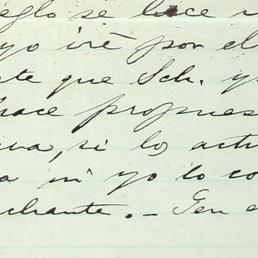 eglo se hace
yo iré por el
te que Sch. y
hace propues
va, si los act
a ni yo lo co
chante. — Gen